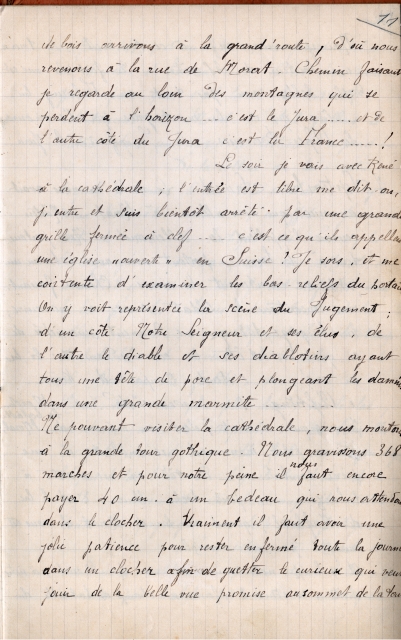 11
de bois arrivons à la grand'route, d'où nous
revenons à la rue de Morat. Chemin faisant
je regarde au loin des montagnes qui se
perdent à l'horizon .... c'est le Jura ..... et de
l'autre côté du Jura c'est la France.....!
Le soir je vais avec René
à la cathédrale ; l'entrée est libre me dit-on,
j'entre et suis bientôt arrêté par une grande
grille fermée à clef .... c'est ce qu'ils appellen
une église "ouverte" en Suisse ! Je sors, et me
contente d'examiner les bas-reliefs du portai
On y voit représentée la scène du Jugement ;
d'un côté Notre Seigneur et ses élus, de
l'autre le diable et ses diablotins ayant
tous une tête de porc et plongeant les damné
dans une grande marmite ..........
Ne pouvant visiter la cathédrale, nous monton
à la grande tour gothique. Nous gravissons 368
marches et pour notre peine il nous faut encore
payer 40 cm. à un bedeau qui nous attendai
dans le clocher. Vraiment il faut avoir une
jolie patience pour rester enfermé toute la journé
dans un clocher afin de guetter le curieux qui veu
jouir de la belle vue promise au sommet de la tou